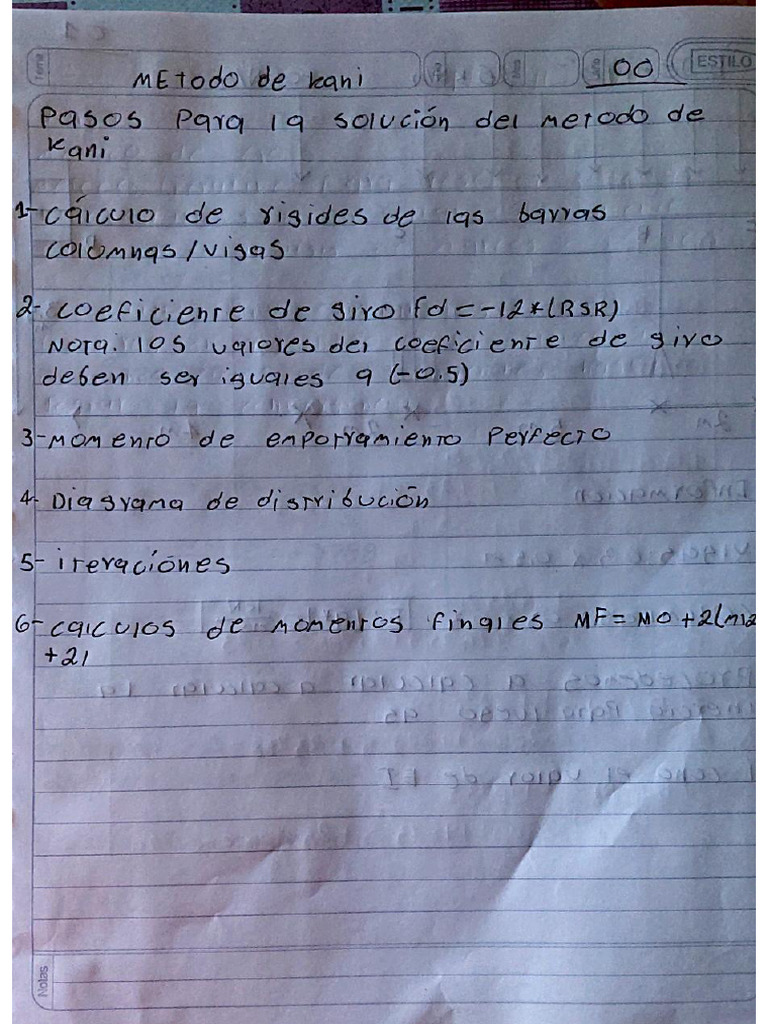 Tema
METODO de Kani
00
ESTILO
Pasos para la solución del metodo de
Kani
1- Cálculo de rigides de las barras
columnas/vigas
2- coeficiente de giro fd=-12*(RSR)
Nota: los valores del coeficiente de giro
deben ser iguales a (-0.5)
3- momento de emporramiento Perfecto
4- Diagrama de distribución
5- iteraciones
6- calculos de momentos finales MF= MO+2(m12
+21
Notas